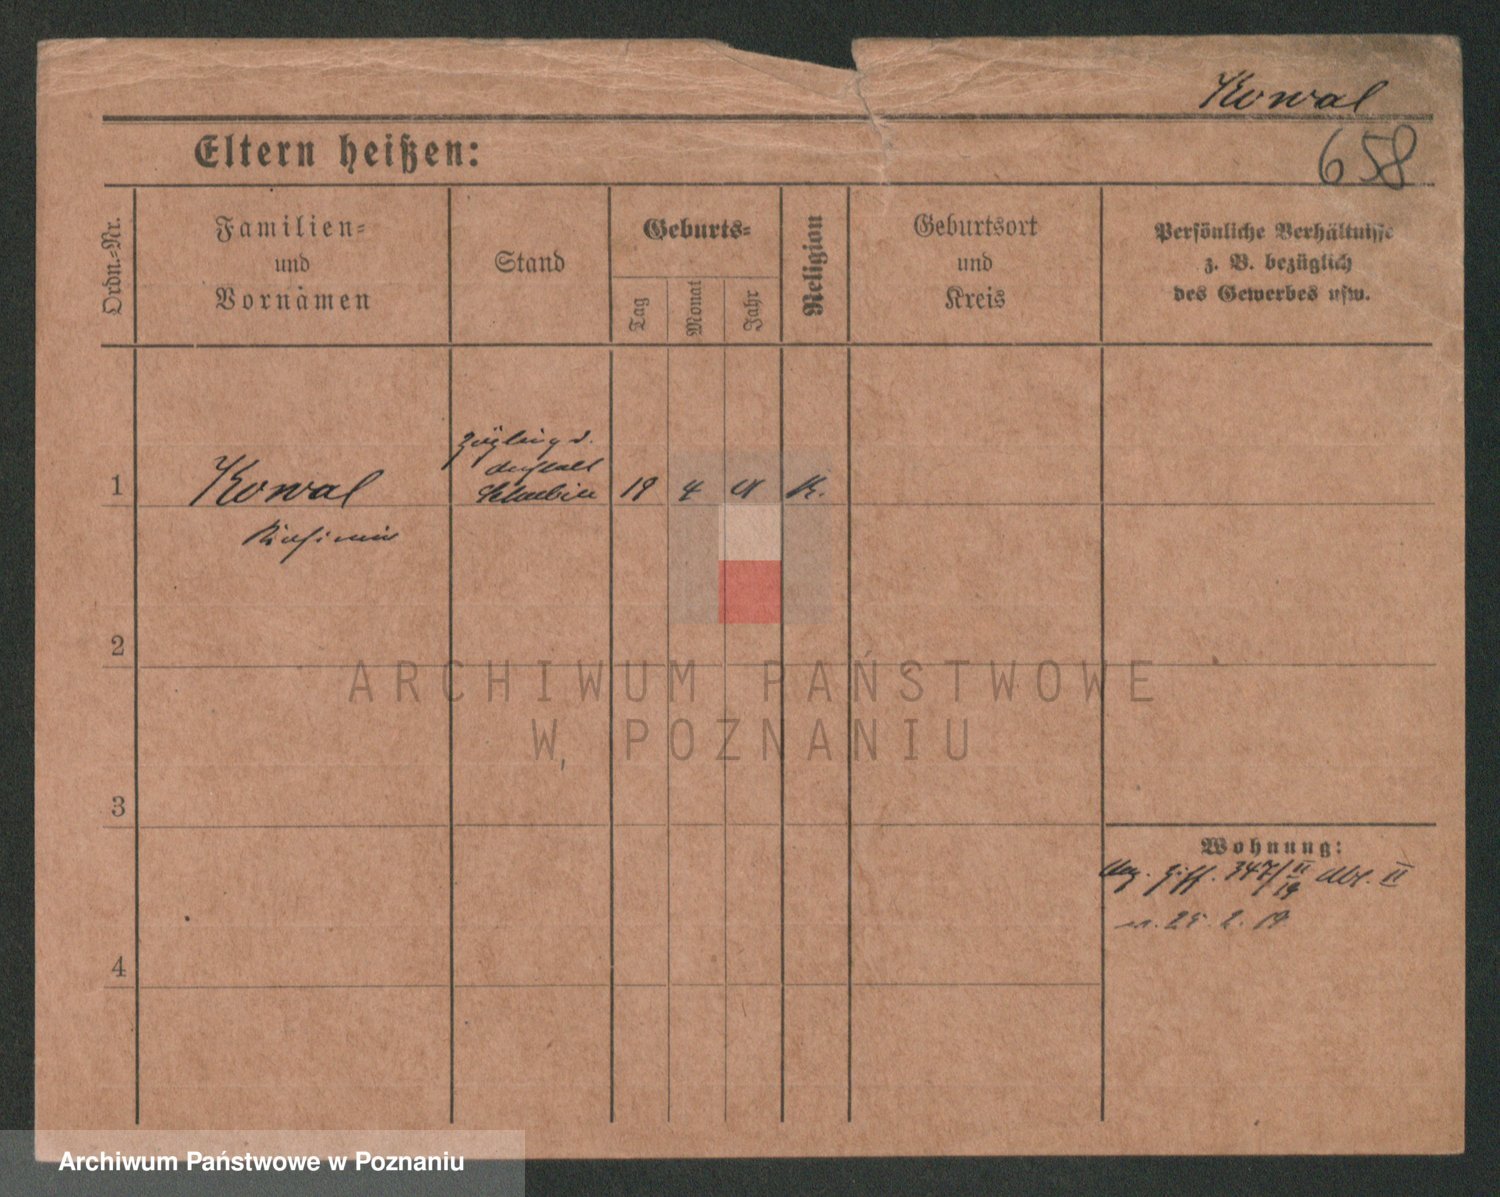 Kowal
658
Eltern heißen:
Ordn.-Nr.
Familien-
und
Vornamen
Stand
Geburts-
Tag
Monat
Jahr
Religion
Geburtsort
und
Kreis
Persönliche Verhältnisse
z. B. bezüglich
des Gewerbes usw.
Zögling d.
Anstalt
Schubin
1
Kowal
18
4
K.
Kasimir
2
3
4
Wohnung:
347/II 19 Abt. II
25. 2. 19
ARCHIWUM PAŃSTWOWE
W POZNANIU
Archiwum Państwowe w Poznaniu